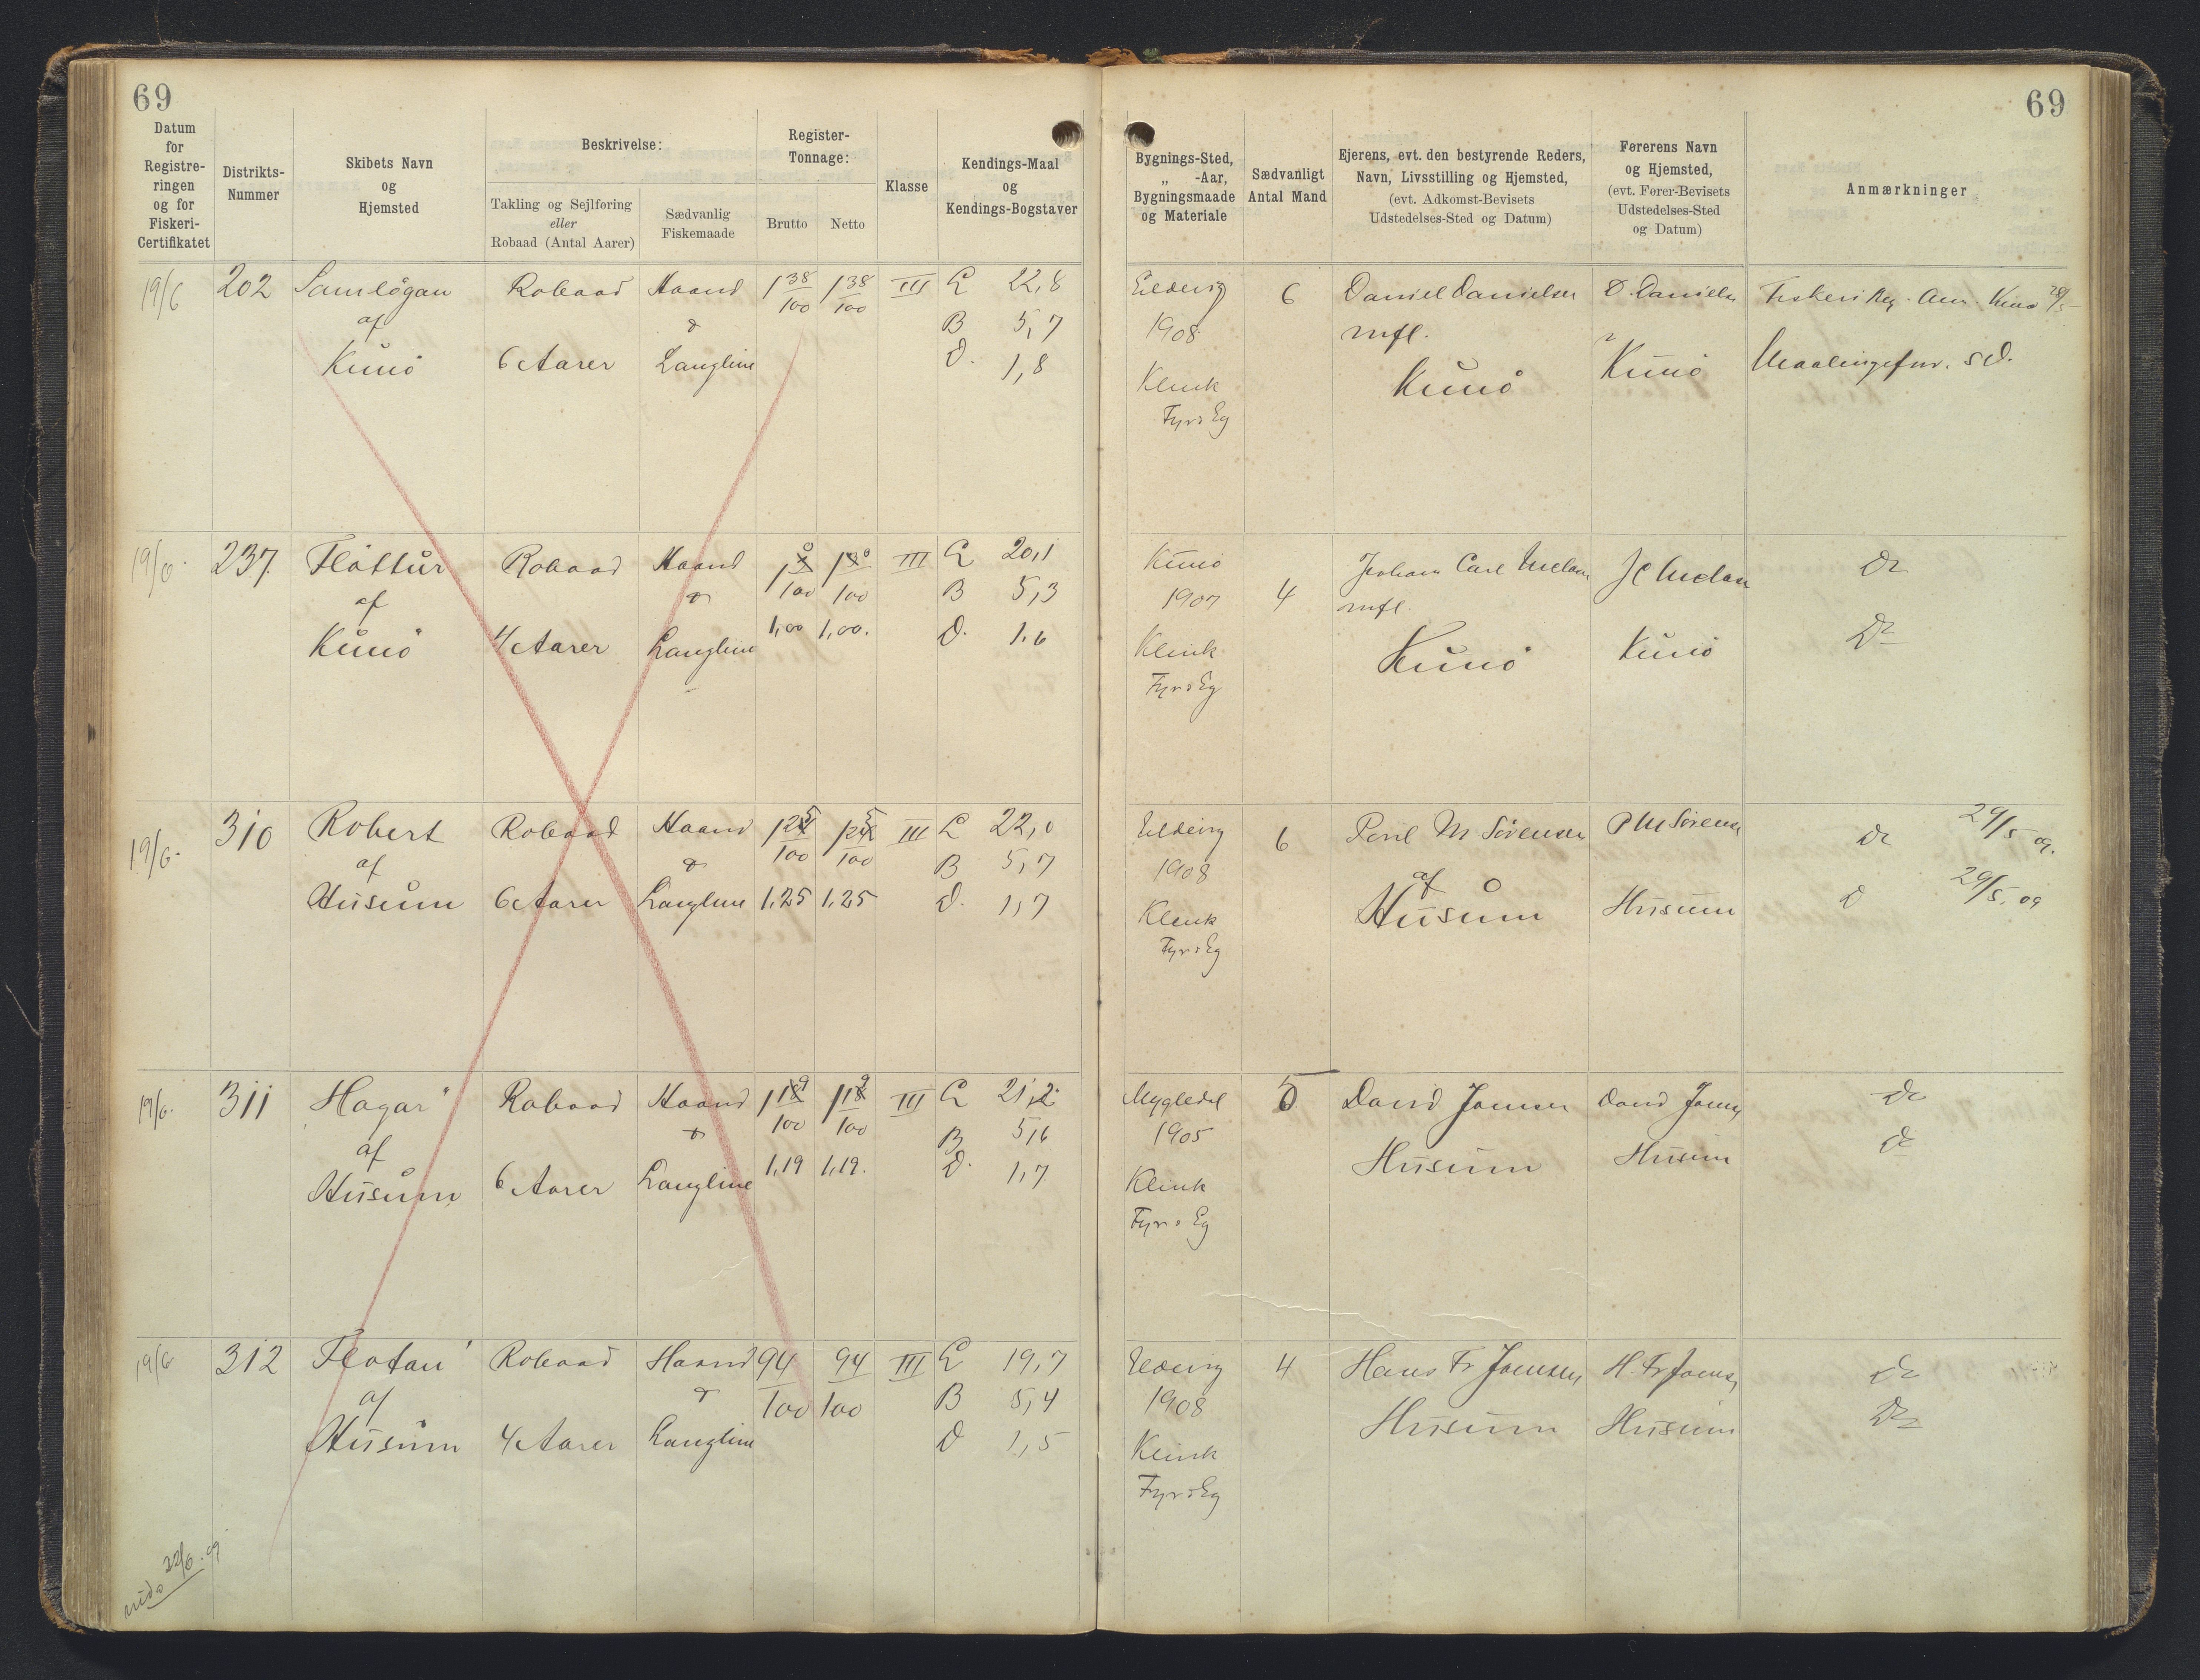 69
69
Datum for Registreringen og for Fiskeri-Certifikatet
Distrikts-Nummer
Skibets Navn og Hjemsted
Beskrivelse:
Takling og Sejlføring eller Robaad (Antal Aarer)
Sædvanlig Fiskemaade
Register-Tonnage:
Brutto
Netto
Klasse
Kendings-Maal og Kendings-Bogstaver
Bygnings-Sted, „ -Aar, Bygningsmaade og Materiale
Sædvanligt Antal Mand
Ejerens, evt. den bestyrende Reders, Navn, Livsstilling og Hjemsted, (evt. Adkomst-Bevisets Udstedelses-Sted og Datum)
Førerens Navn og Hjemsted, (evt. Fører-Bevisets Udstedelses-Sted og Datum)
Anmærkninger
19/6 202 Samlögan Robaad Haand 1 38/100 1 38/100 III L 22,8
af & B 5,7
Kunö 6 Aarer Langline D. 1,8
6 Daniel Danielsen D. Danielsen
1908 mfl.
Kunö Kunö
Klink
Fyr & Eg
19/6. 237. Flöttur Robaad Haand III L 20,1
af & B 5,3
Kunö 4 Aarer Langline 1,00 1,00. D. 1,6
Kunö Johan Carl
1907 4 mfl.
Klink Kunö Kunö
Fyr & Eg
19/6. 310 Robert Robaad Haand III L 22,0
af & B 5,7
Husum 6 Aarer Langline 1,25 1,25 D. 1,7
6 Poul M Sörensen P M Sörensen 29/5 09.
1908 af 29/5. 09
Klink Husum Husum
Fyr & Eg
19/6. 311 Hagar" Robaad Haand III L 21,2
af & B 5,6
Husum 6 Aarer Langline 1,19 1,19. D. 1,7
Mygledal 5 David Joensen David Joens
1905 Husum Husum
Klink
Fyr & Eg
19/6 312 Flotan Robaad Haand 94/100 94/100 III L 19,7
af & B 5,4
Husum 4 Aarer Langline D 1,5
4 Hans Fr Joensen H. Fr Joens
1908 Husum Husum
Klink
Fyr & Eg